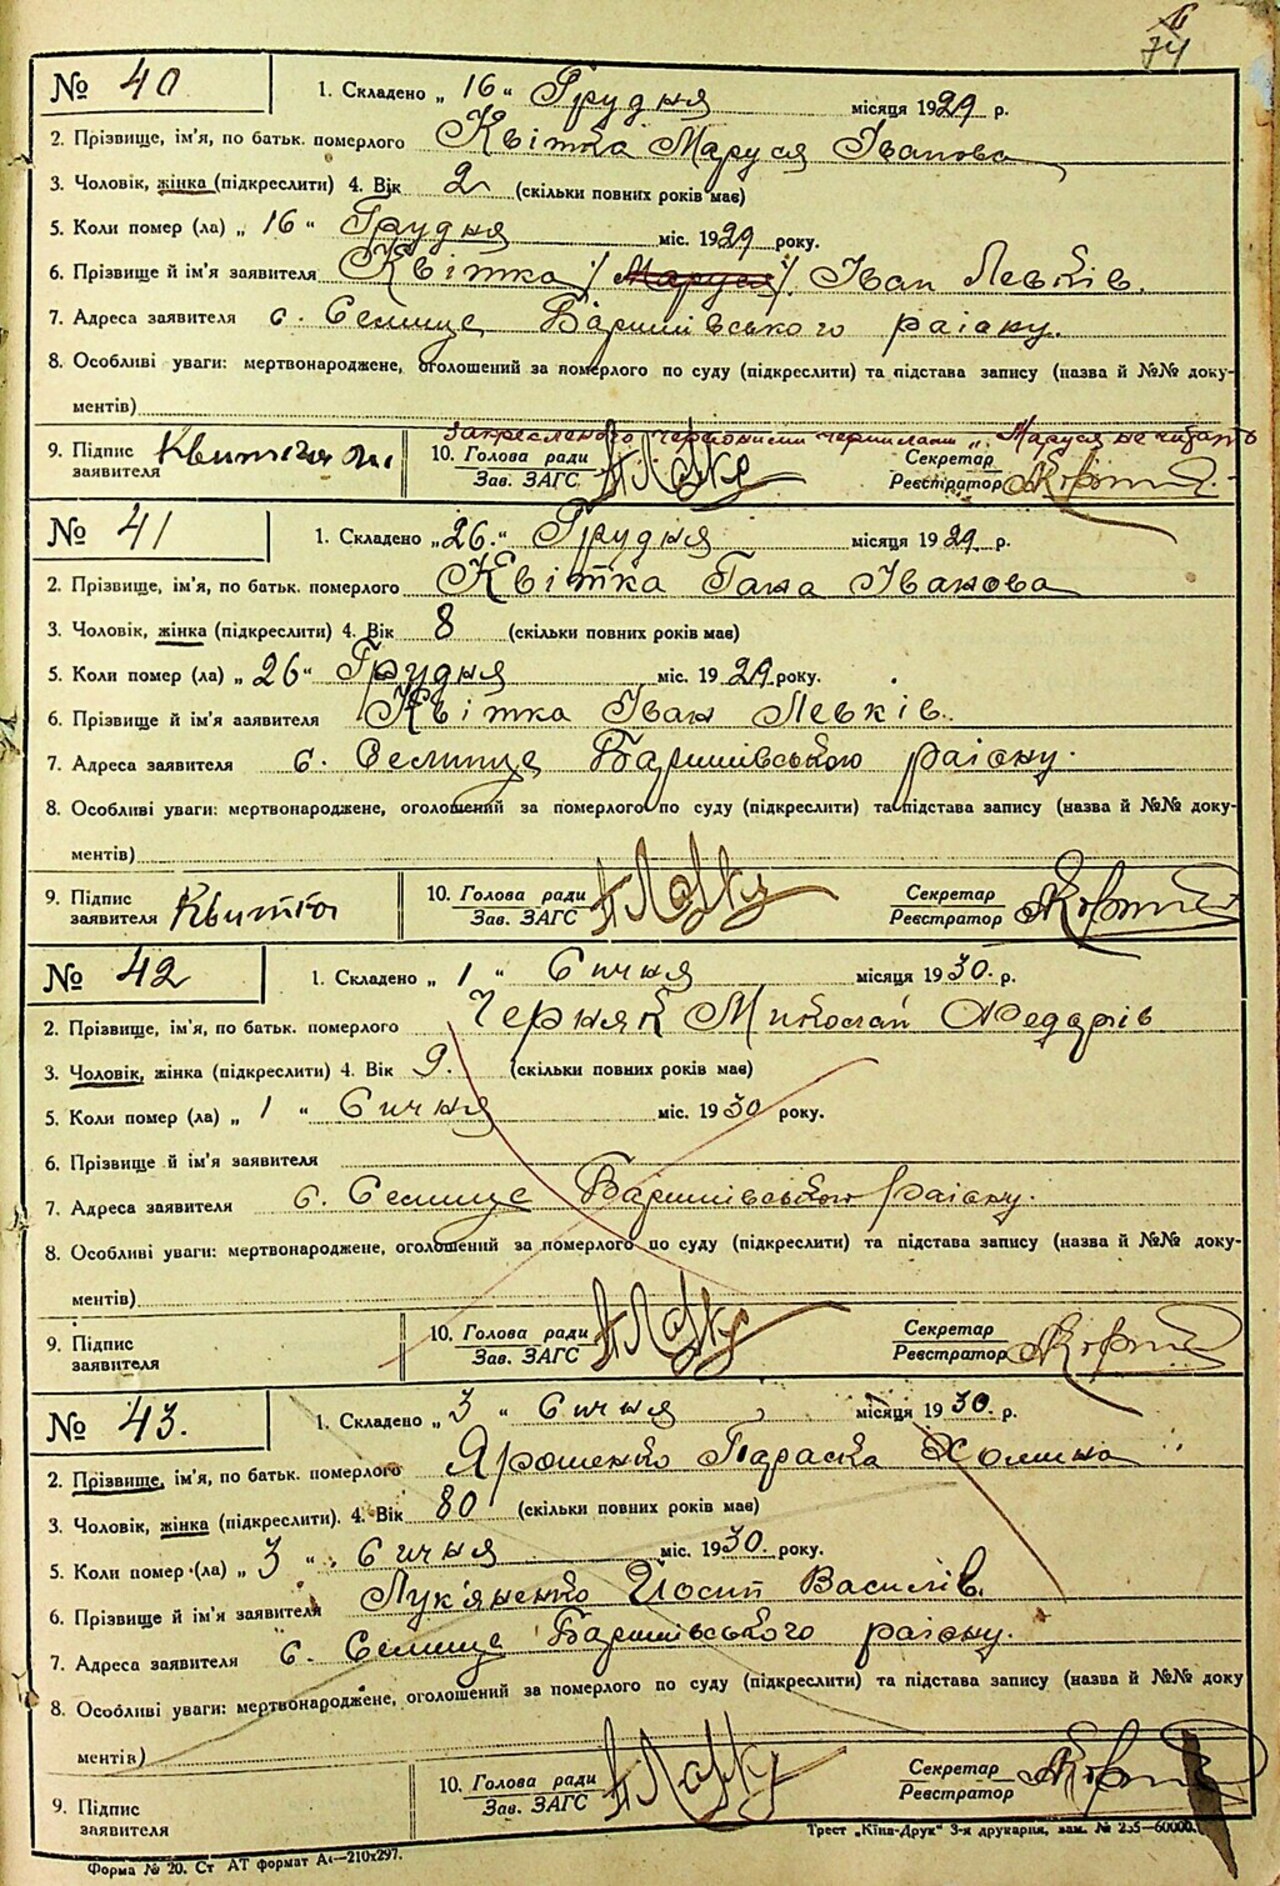 74
№ 40 1. Складено „ 16 “ Грудня місяця 1929 р.
2. Прізвище, ім'я, по батьк. померлого Квітка Маруся Іванова
3. Чоловік, жінка (підкреслити) 4. Вік 2 (скільки повних років має)
5. Коли помер (ла) „ 16 “ Грудня міс. 1929 року.
6. Прізвище й ім'я заявителя Квітка /Маруся/ Іван Левків.
7. Адреса заявителя с. Селище Баришівського раіону.
8. Особливі уваги: мертвонароджене, оголошений за померлого по суду (підкреслити) та підстава запису (назва й №№ доку-
ментів)
Закресленого червоними чернилами „Маруся не читать
9. Підпис заявителя 10. Голова ради Секретар
Зав. ЗАГС Реєстратор
№ 41 1. Складено „ 26. “ Грудня місяця 1929 р.
2. Прізвище, ім'я, по батьк. померлого Квітка Гана Іванова
3. Чоловік, жінка (підкреслити) 4. Вік 8 (скільки повних років має)
5. Коли помер (ла) „ 26 “ Грудня міс. 1929 року.
6. Прізвище й ім'я заявителя Квітка Іван Левків.
7. Адреса заявителя с. Селище Баришівського раіону.
8. Особливі уваги: мертвонароджене, оголошений за померлого по суду (підкреслити) та підстава запису (назва й №№ доку-
ментів)
9. Підпис заявителя Квитка 10. Голова ради Секретар
Зав. ЗАГС Реєстратор
№ 42 1. Складено „ 1 “ Сичня місяця 1930. р.
2. Прізвище, ім'я, по батьк. померлого Черняк Миколай Федорів
3. Чоловік, жінка (підкреслити) 4. Вік 9. (скільки повних років має)
5. Коли помер (ла) „ 1 “ Сичня міс. 1930 року.
6. Прізвище й ім'я заявителя
7. Адреса заявителя с. Селище Баришівського раіону.
8. Особливі уваги: мертвонароджене, оголошений за померлого по суду (підкреслити) та підстава запису (назва й №№ доку-
ментів)
9. Підпис заявителя 10. Голова ради Секретар
Зав. ЗАГС Реєстратор
№ 43. 1. Складено „ 3 “ Сичня місяця 1930. р.
2. Прізвище, ім'я, по батьк. померлого Ярошенко Параска Хомина
3. Чоловік, жінка (підкреслити). 4. Вік 80 (скільки повних років має)
5. Коли помер (ла) „ 3 “ Сичня міс. 1930. року.
6. Прізвище й ім'я заявителя Лук'яненко Йосип Василів.
7. Адреса заявителя с. Селище Баришівського раіону.
8. Особливі уваги: мертвонароджене, оголошений за померлого по суду (підкреслити) та підстава запису (назва й №№ доку
ментів)
9. Підпис заявителя 10. Голова ради Секретар
Зав. ЗАГС Реєстратор
Форма № 20. Ст АТ формат А4—210x297. Трест „Київ-Друк“ 3-я друкарня, зам. № 255—60000.